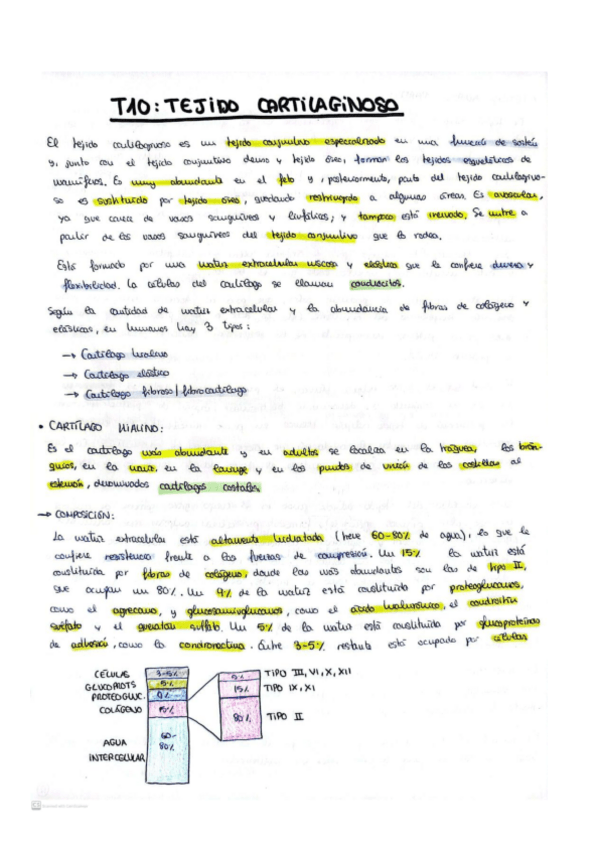 T10: TEJIDO CARTILAGINOSO
El tejido cartilaginoso es un tejido conjuntivo especializado en una función de sostén
y, junto con el tejido conjuntivo denso y tejido óseo, forman los tejidos esqueléticos de
mamíferos. Es muy abundante en el feto y, posteriormente, parte del tejido cartilagino-
so es sustituido por tejido óseo, quedando restringido a algunas áreas. Es avascular,
ya que carece de vasos sanguíneos y linfáticos, y tampoco está inervado. Se nutre a
partir de los vasos sanguíneos del tejido conjuntivo que lo rodea.
Está formado por una matriz extracelular viscosa y elástica que le confiere dureza y
flexibilidad. La células del cartílago se llaman condrocitos.
Según la cantidad de matriz extracelular y la abundancia de fibras de colágeno y
elásticas, en humanos hay 3 tipos:
→ Cartílago hialino
→ Cartílago elástico
→ Cartílago fibroso / fibrocartílago
• CARTÍLAGO HIALINO:
Es el cartílago más abundante y en adultos se localiza en la tráquea, los bron-
quios, en la nariz, en la laringe y en los puntos de unión de las costillas al
esternón, denominados cartílagos costales.
→ COMPOSICIÓN:
La matriz extracelular está altamente hidratada (tiene 60-80% de agua), lo que le
confiere resistencia frente a las fuerzas de compresión. Un 15% la matriz está
constituida por fibras de colágeno, donde las más abundantes son las de tipo II,
que ocupan un 80%. Un 9% de la matriz está constituida por proteoglucanos,
como el agrecano, y glucosaminoglucanos, como el ácido hialurónico, el condroitín
sulfato y el queratán sulfato. Un 5% de la matriz está constituida por glucoproteínas
de adhesión, como la condronectina. Entre 3-5% restante está ocupado por células
CÉLULAS 3-5% 5% TIPO III, VI, X, XII
GLUCOPROTS 5%
PROTEOGLUC. 9% 15% TIPO IX, XI
COLÁGENO 15%
80% TIPO II
AGUA 60-
INTERCELULAR 80%